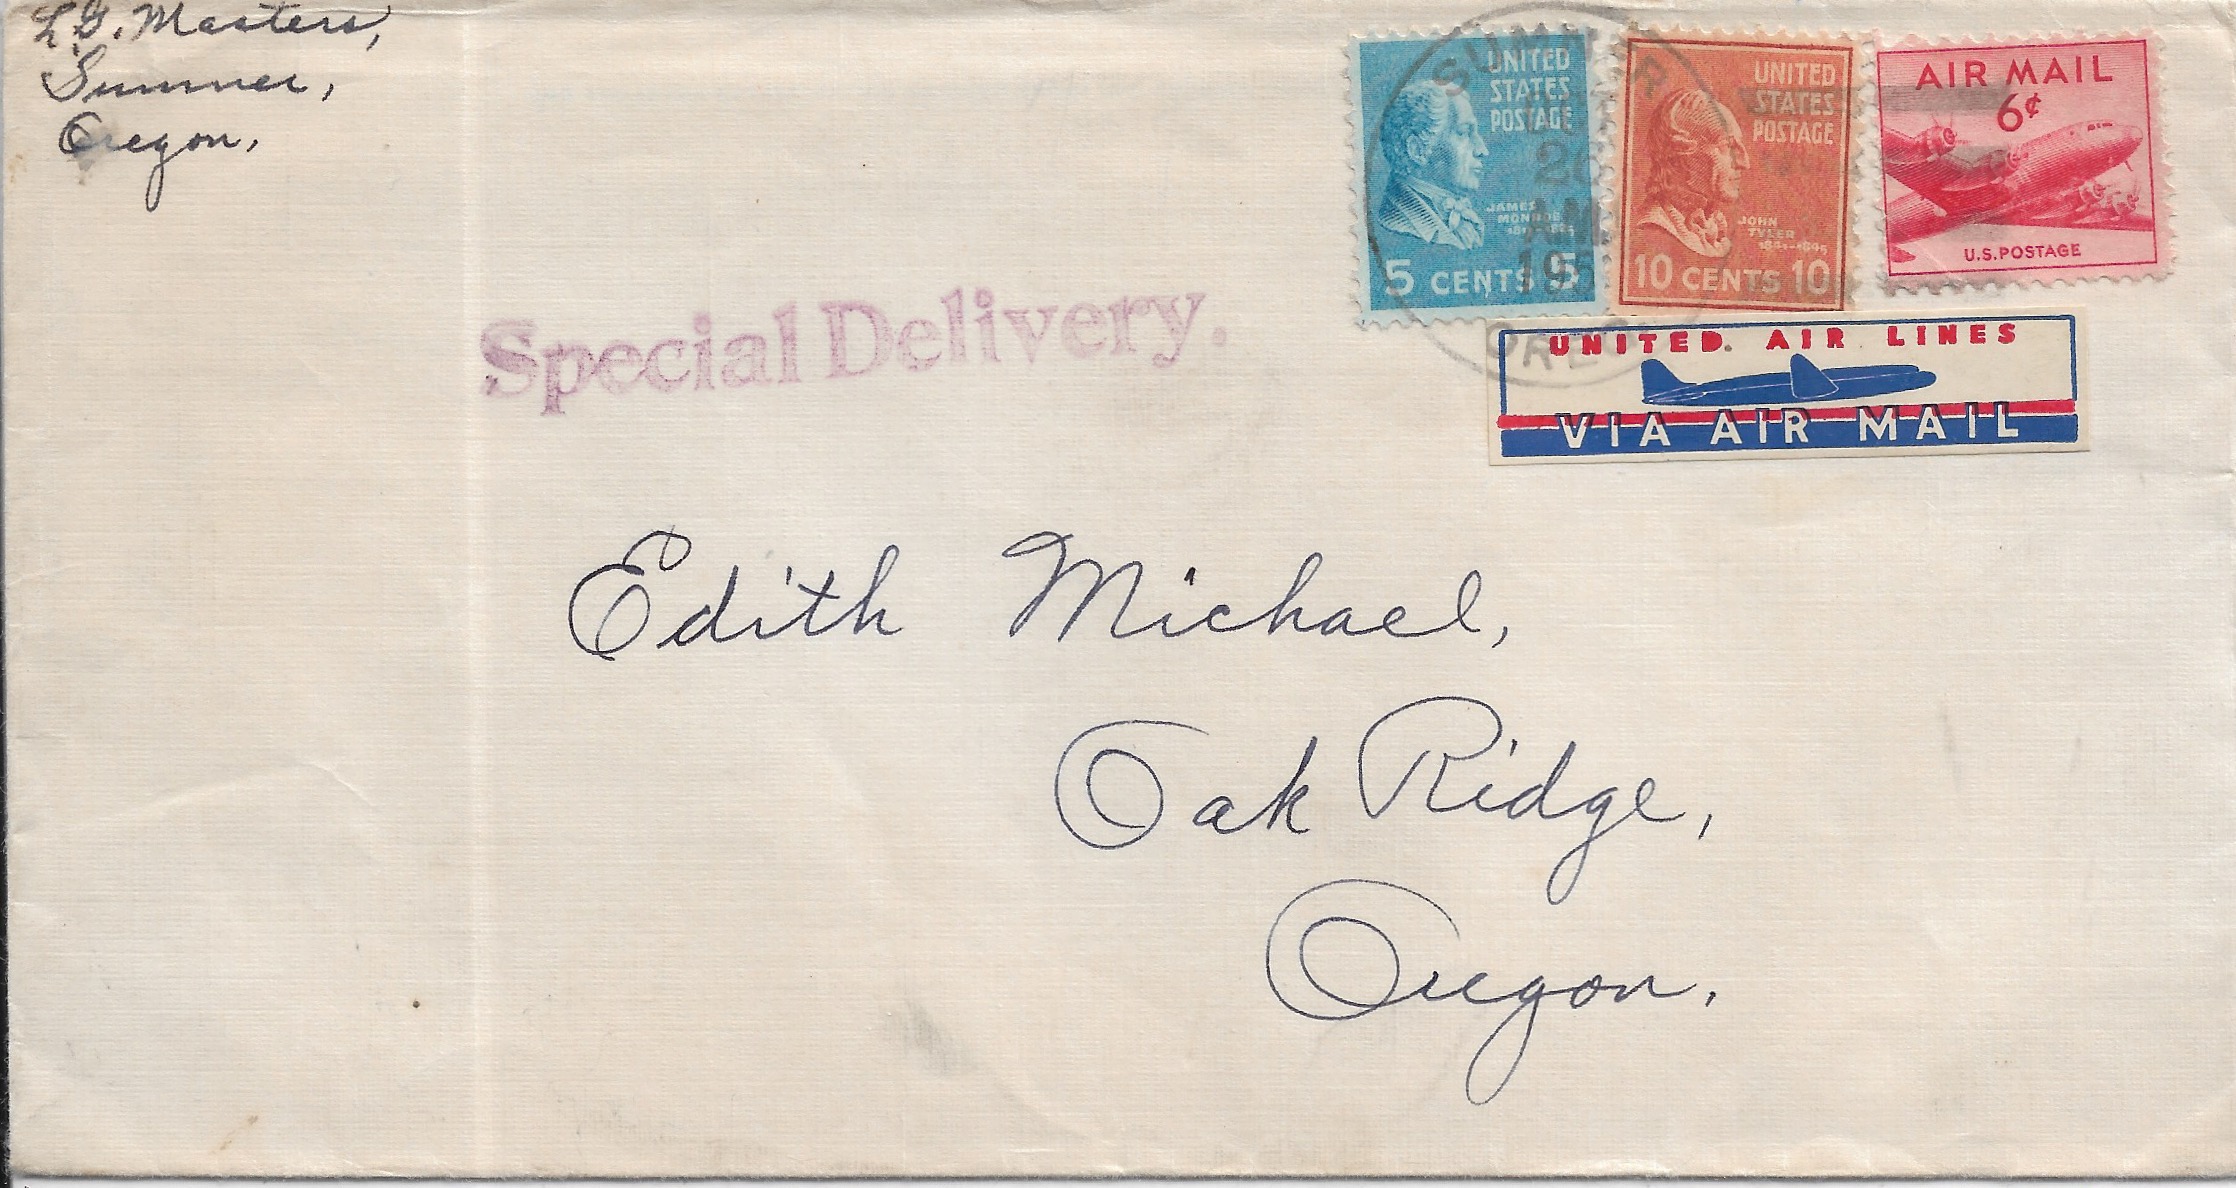 L.G. Masters,
Sumner,
Oregon,
SUMNER
20
AM
195
OREG
UNITED
STATES
POSTAGE
JAMES
MONROE
5 CENTS 5
UNITED
STATES
POSTAGE
JOHN
TYLER
1841-1845
10 CENTS 10
AIR MAIL
6¢
U.S. POSTAGE
UNITED AIR LINES
VIA AIR MAIL
Special Delivery.
Edith Michael,
Oak Ridge,
Oregon.